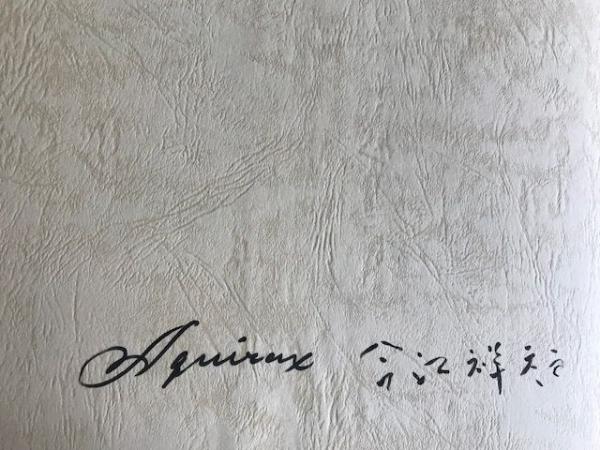 Aquirax 今江祥智